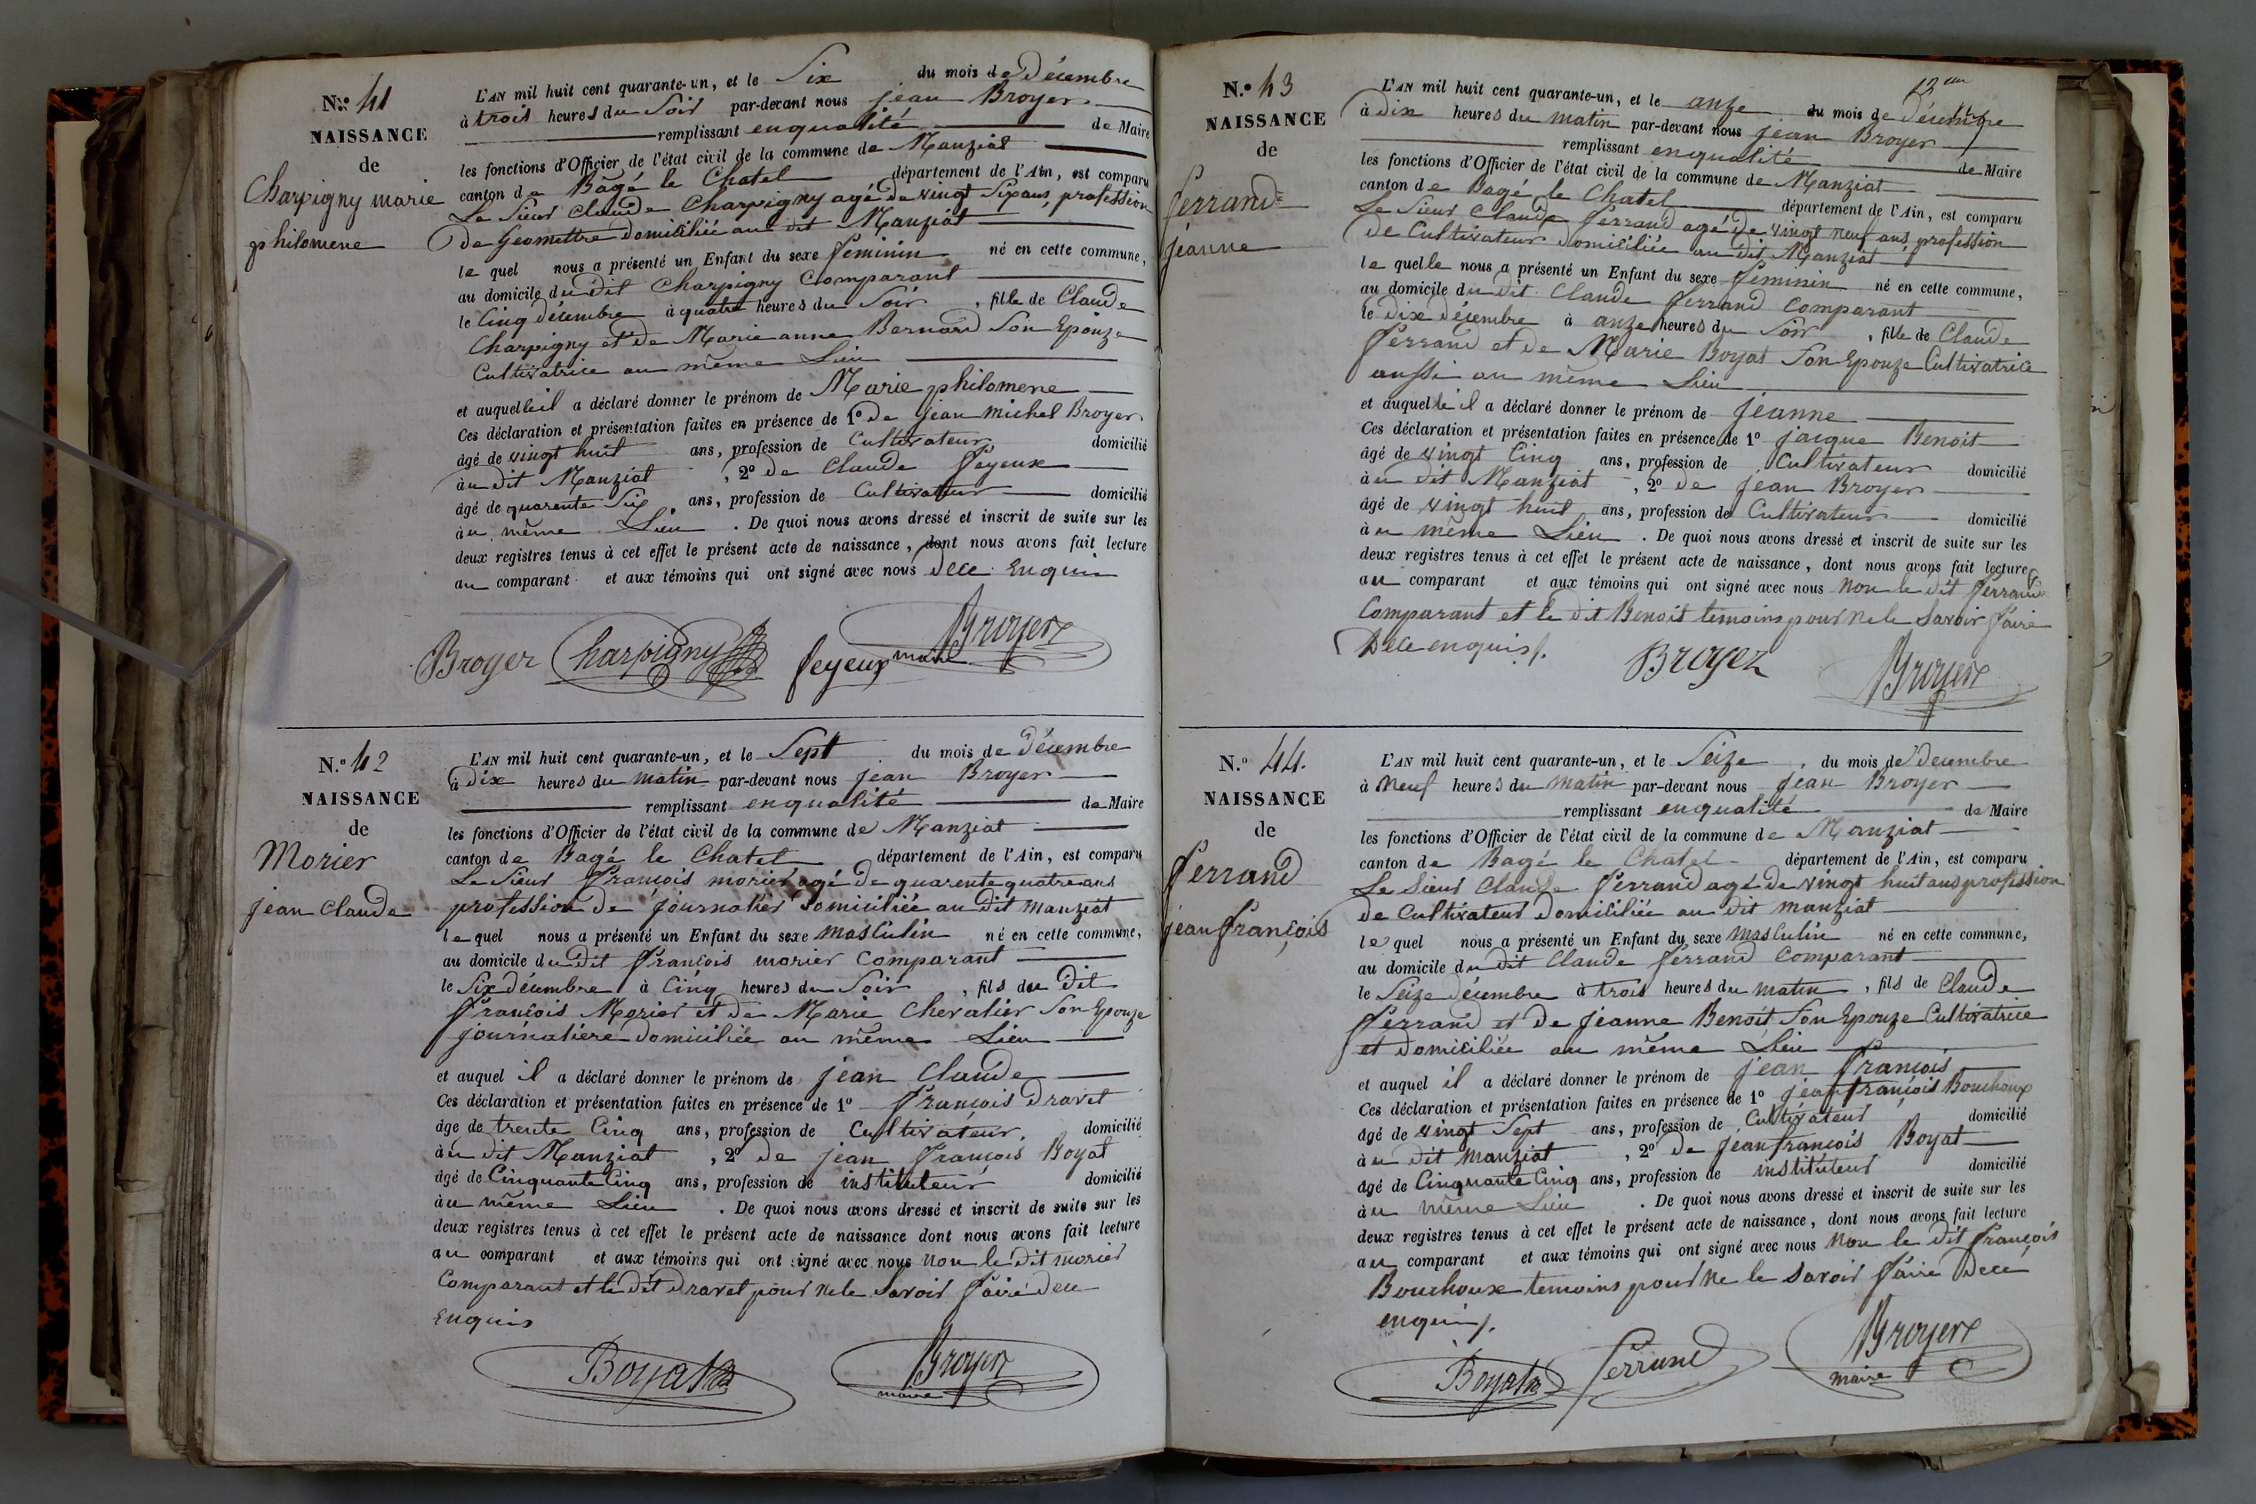 N.º 41
NAISSANCE
de
Charpigny marie
philomene
L'AN mil huit cent quarante-un, et le Six du mois de Décembre
à trois heures du Soir par-devant nous jean Broyer
remplissant enqualité de Maire
les fonctions d'Officier de l'état civil de la commune de Manziat
canton de Bagé le Chatel département de l'Ain, est comparu
Le Sieur Claude Charpigny agé de vingt Six ans, profession
De Geomettre domiciliée au dit Manziat
le quel nous a présenté un Enfant du sexe feminin né en cette commune,
au domicile du dit Charpigny Comparant
le Cinq décembre à quatre heures du Soir, fille de Claude
Charpigny et de Marie anne Bernard Son Epouze
Cultivatrice au même Lieu
et auquelle il a déclaré donner le prénom de Marie philomene
Ces déclaration et présentation faites en présence de 1º De jean michel Broyer
âgé de vingt huit ans, profession de Cultivateur, domicilié
àu dit Manziat, 2º de Claude Feyeux
âgé de quarente Six ans, profession de Cultivateur domicilié
àu même Lieu. De quoi nous avons dressé et inscrit de suite sur les
deux registres tenus à cet effet le présent acte de naissance, dont nous avons fait lecture
au comparant et aux témoins qui ont signé avec nous Dece Enquis
Broyer Charpigny feyeux Broyer
maire
N.º 42
NAISSANCE
de
Morier
jean Claude
L'AN mil huit cent quarante-un, et le Sept du mois de Décembre
à Dix heures du matin par-devant nous jean Broyer
remplissant enqualité de Maire
les fonctions d'Officier de l'état civil de la commune de Manziat
canton de Bagé le Chatel département de l'Ain, est comparu
Le Sieur François morier agé de quarente quatre ans
profession de journalier domiciliée au dit manziat
le quel nous a présenté un Enfant du sexe masculin né en cette commune,
au domicile du dit François morier Comparant
le Six décembre à Cinq heures du Soir, fils du Dit
François Morier et de Marie Chevalier Son Epouze
journaliere domiciliée au même Lieu
et auquel il a déclaré donner le prénom de jean Claude
Ces déclaration et présentation faites en présence de 1º François Dravet
âgé de trente Cinq ans, profession de Cultivateur, domicilié
àu dit Manziat, 2º de jean François Boyat
âgé de Cinquante Cinq ans, profession de instituteur domicilié
àu même Lieu. De quoi nous avons dressé et inscrit de suite sur les
deux registres tenus à cet effet le présent acte de naissance dont nous avons fait lecture
au comparant et aux témoins qui ont signé avec nous Non le dit morier
Comparant et le dit Dravet pour ne le Savoir faire Dece
Enquis
Boyat Broyer
maire
N.º 43
NAISSANCE
de
Ferrand
jéanne
L'AN mil huit cent quarante-un, et le onze du mois de Décembre
à Dix heures du matin par-devant nous jean Broyer
remplissant enqualité de Maire
les fonctions d'Officier de l'état civil de la commune de Manziat
canton de Bagé le Chatel département de l'Ain, est comparu
Le Sieur Claude Ferrand agé de vingt neuf ans, profession
de Cultivateur domiciliée au dit Manziat
le quelle nous a présenté un Enfant du sexe feminin né en cette commune,
au domicile du dit Claude Ferrand Comparant
le Dix décembre à onze heures du Soir, fille de Claude
Ferrand et de Marie Boyat Son Epouze Cultivatrice
aussi au même Lieu
et auquelle il a déclaré donner le prénom de jéanne
Ces déclaration et présentation faites en présence de 1º jacque Benoit
âgé de vingt Cinq ans, profession de Cultivateur domicilié
àu dit Manziat, 2º de jean Broyer
âgé de vingt huit ans, profession de Cultivateur domicilié
àu même Lieu. De quoi nous avons dressé et inscrit de suite sur les
deux registres tenus à cet effet le présent acte de naissance, dont nous avons fait lecture
au comparant et aux témoins qui ont signé avec nous Non le dit Ferrand
Comparant et le dit Benoit temoins pour ne le Savoir faire
Dece enquis
Broyer Broyer
N.º 44.
NAISSANCE
de
Ferrand
jéan françois
L'AN mil huit cent quarante-un, et le Seize, du mois de Décembre
à Neuf heures du matin par-devant nous jean Broyer
remplissant enqualité de Maire
les fonctions d'Officier de l'état civil de la commune de Manziat
canton de Bagé le Chatel département de l'Ain, est comparu
Le Sieur Claude Ferrand agé de vingt huit ans profession
de Cultivateur domiciliée au dit manziat
le quel nous a présenté un Enfant du sexe masculin né en cette commune,
au domicile du dit Claude Ferrand Comparant
le Seize décembre à trois heures du matin, fils de Claude
Ferrand et de jeanne Benoit Son Epouze Cultivatrice
et domiciliée au même Lieu
et auquel il a déclaré donner le prénom de jean François
Ces déclaration et présentation faites en présence de 1º jean françois Bouchoux
âgé de vingt Sept ans, profession de Cultivateur domicilié
àu dit manziat, 2º de jean françois Boyat
âgé de Cinquante Cinq ans, profession de instituteur domicilié
àu même Lieu. De quoi nous avons dressé et inscrit de suite sur les
deux registres tenus à cet effet le présent acte de naissance, dont nous avons fait lecture
au comparant et aux témoins qui ont signé avec nous Non le dit François
Bouchoux temoins pour ne le Savoir faire Dece
enquis
Boyat Ferrand Broyer
maire